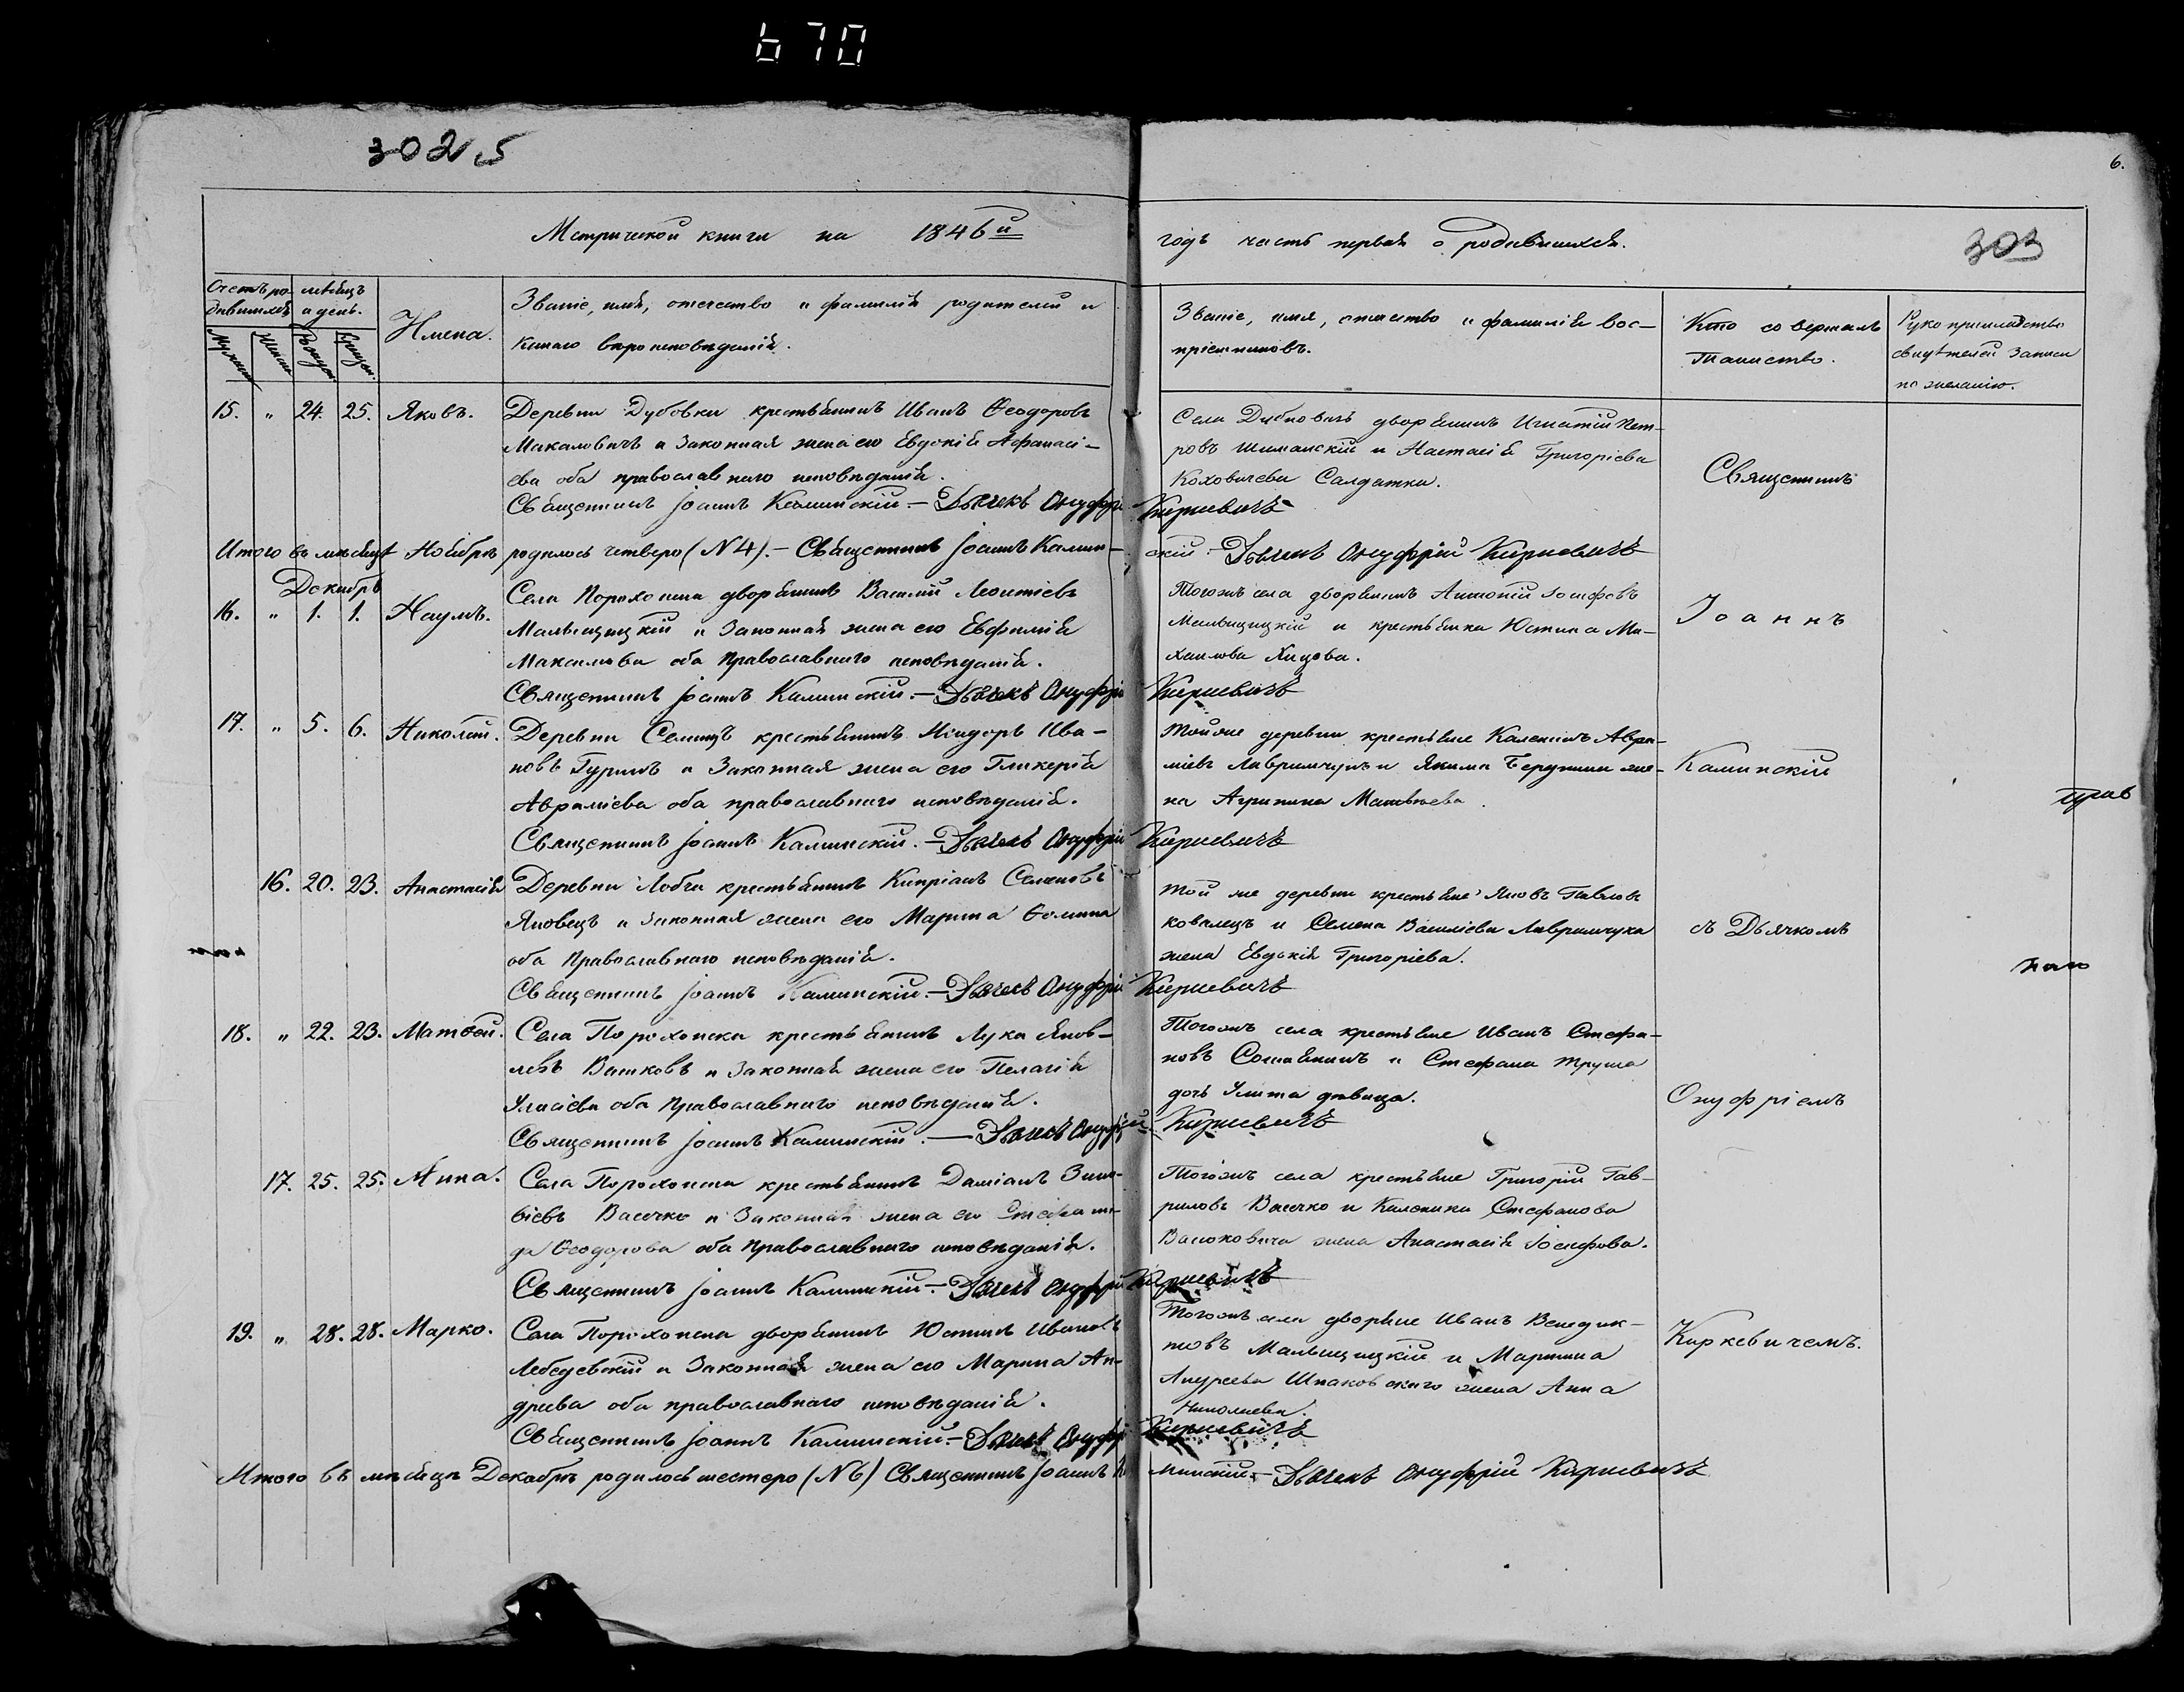 670
302 1/5
6.
Метрической книги на 1846й годъ часть первая о родившихся.
303
Счетъ ро-
дившихся
мѣсяцъ
и день.
Мужес
Женс
Рожден
Крещен.
Имена.
Званіе, имя, отечество и фамилія родителей и
какого вѣроисповѣданія.
Званіе, имя, отчество и фамилія вос-
пріемниковъ.
Кто совершалъ
таинство.
Рукоприкладство
свидѣтелей записи
по желанію.
15. " 24. 25. Яковъ.
Деревни Дубовки крестьянинъ Иванъ Ѳеодоровъ
Макаловичъ и законная жена его Евдокія Афанасі-
ева оба православнаго исповѣданія.
Священникъ Іоаннъ Калинскій. — Дьячекъ Онуфрій Киркевичъ
Села дворянинъ Игнатій Пет-
ровъ Шиманскій и Настасія Григоріева
Коховичева Салдатка.
Священникъ
Итого въ мѣсяцѣ Ноябрѣ родилось четверо (N4). — Священникъ Іоаннъ Калин-
скій — Дьячекъ Онуфрій Киркевичъ
Декабрь
16. " 1. 1. Наумъ.
Села Порохонска дворянинъ Василій Леонтіевъ
Мальщицкій и законная жена его Евфимія
Максимова оба православнаго исповѣданія.
Священникъ Іоаннъ Калинскій. — Дьячекъ Онуфрій Киркевичъ
Тогожъ села дворянинъ Антоній Іосифовъ
Мальщицкій и крестьянка Юстина Ми-
хаилова Хицова.
Іоаннъ
17. " 5. 6. Николай.
Деревни Семищъ крестьянинъ Исидоръ Ива-
новъ Гуринъ и законная жена его Гликерія
Авраміева оба православнаго исповѣданія.
Священникъ Іоаннъ Калинскій. — Дьячекъ Онуфрій Киркевичъ
Тойже деревни крестьяне Каленикъ Авра-
міевъ Лавримчукъ и Якима же-
на Агрипина Матвѣева.
Калинскій
прав
16. 20. 23. Анастасія
Деревни Лобчи крестьянинъ Кипріанъ Семеновъ
Яковецъ и законная жена его Марина Ѳомина
оба православнаго исповѣданія.
Священникъ Іоаннъ Калинскій. — Дьячекъ Онуфрій Киркевичъ
Той же деревни крестьяне Яковъ Павловъ
Ковалецъ и Семена Василіева Лавримчука
жена Евдокія Григоріева.
съ Дьячкомъ
18. " 22. 23. Матѳей.
Села Порохонска крестьянинъ Лука Яков-
левъ Вашковъ и законная жена его Пелагія
оба православнаго исповѣданія.
Священникъ Іоаннъ Калинскій. — Дьячекъ Онуфрій Киркевичъ
Тогожъ села крестьяне Иванъ Стефа-
новъ и Стефана Труша
дочь Улита дѣвица.
Онуфріемъ
17. 25. 25. Анна.
Села Порохонска крестьянинъ Даміанъ Зино-
віевъ Васечко и законная жена его Стефани-
да Ѳеодорова оба православнаго исповѣданія.
Священникъ Іоаннъ Калинскій. — Дьячекъ Онуфрій Киркевичъ
Тогожъ села крестьяне Григорій Гав-
риловъ Васечко и Каленика Стефанова
Васюковича жена Анастасія Іосифова.
19. " 28. 28. Марко.
Села Порохонска дворянинъ Юстинъ Ивановъ
Лебедевскій и законная жена его Марина Ан-
дреева оба православнаго исповѣданія.
Священникъ Іоаннъ Калинскій. — Дьячекъ Онуфрій Киркевичъ
Тогожъ села дворяне Иванъ Венедик-
товъ Мальщицкій и Мартина
Андреева Шпаковскаго жена Анна
Николаева.
Киркевичемъ.
Итого въ мѣсяцѣ Декабрѣ родилось шестеро (N6) Священникъ Іоаннъ Ка-
линскій — Дьячекъ Онуфрій Киркевичъ